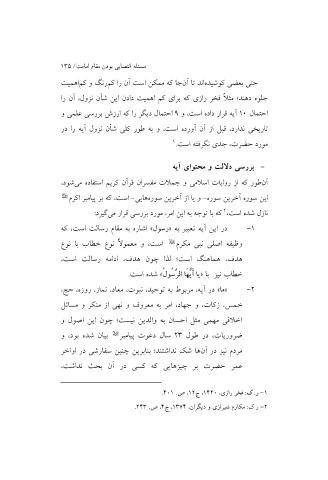 مسئله قتصایی بودن مقام امامت/ ۱۳۵
حتی بعضی کوشیده‌اند تا آن‌جا که ممکن است آن را کم‌رنگ و کم‌اهمیت
جلوه دهند؛ مثلاً فخر رازی که برای کم اهمیت دادن این شأن نزول، آن را
احتمال ۱۰ آیه قرار داده است، و ۹ احتمال دیگر را که ارزش بررسی علمی و
تاریخی ندارد، قبل از آن آورده است، و به طور کلی شأن نزول آیه را در
مورد حضرت، جدی نگرفته است.۱
- بررسی دلالت و محتوای آیه
آن‌طور که از روایات اسلامی و جملات مفسران قرآن کریم استفاده می‌شود،
این سوره آخرین سوره- و یا از آخرین سوره‌هایی- است، که بر پیامبر اکرم ﷺ
نازل شده است،۲ که با توجه به این امر، مورد بررسی قرار می‌گیرد:
۱- در این آیه تعبیر به «رسول» اشاره به مقام رسالت است، که
وظیفه اصلی نبی مکرم ﷺ است، و معمولاً نوع خطاب با نوع
هدف، هماهنگ است؛ لذا چون هدف، ادامه رسالت است،
خطاب نیز با «یا أَیُّهَا الرَّسُول» شده است.
۲- «ما» در آیه، مربوط به توحید، نبوت، معاد، نماز، روزه، حج،
خمس، زکات، و جهاد، امر به معروف و نهی از منکر و مسائل
اخلاقی مهمی مثل احسان به والدین نیست؛ چون این اصول و
ضروریات، در طول ۲۳ سال دعوت پیامبر ﷺ بیان شده بود، و
مردم نیز در آن‌ها شک نداشتند؛ بنابرین چنین سفارشی در اواخر
عمر حضرت بر چیزهایی که کسی در آن بحث نداشت،
۱- ر.ک: فخر رازی، ۱۴۲۰، ج۱۲، ص. ۴۰۱.
۲- ر ک: مکارم شیرازی و دیگران، ۱۳۷۴، ج۴، ص. ۲۴۳.